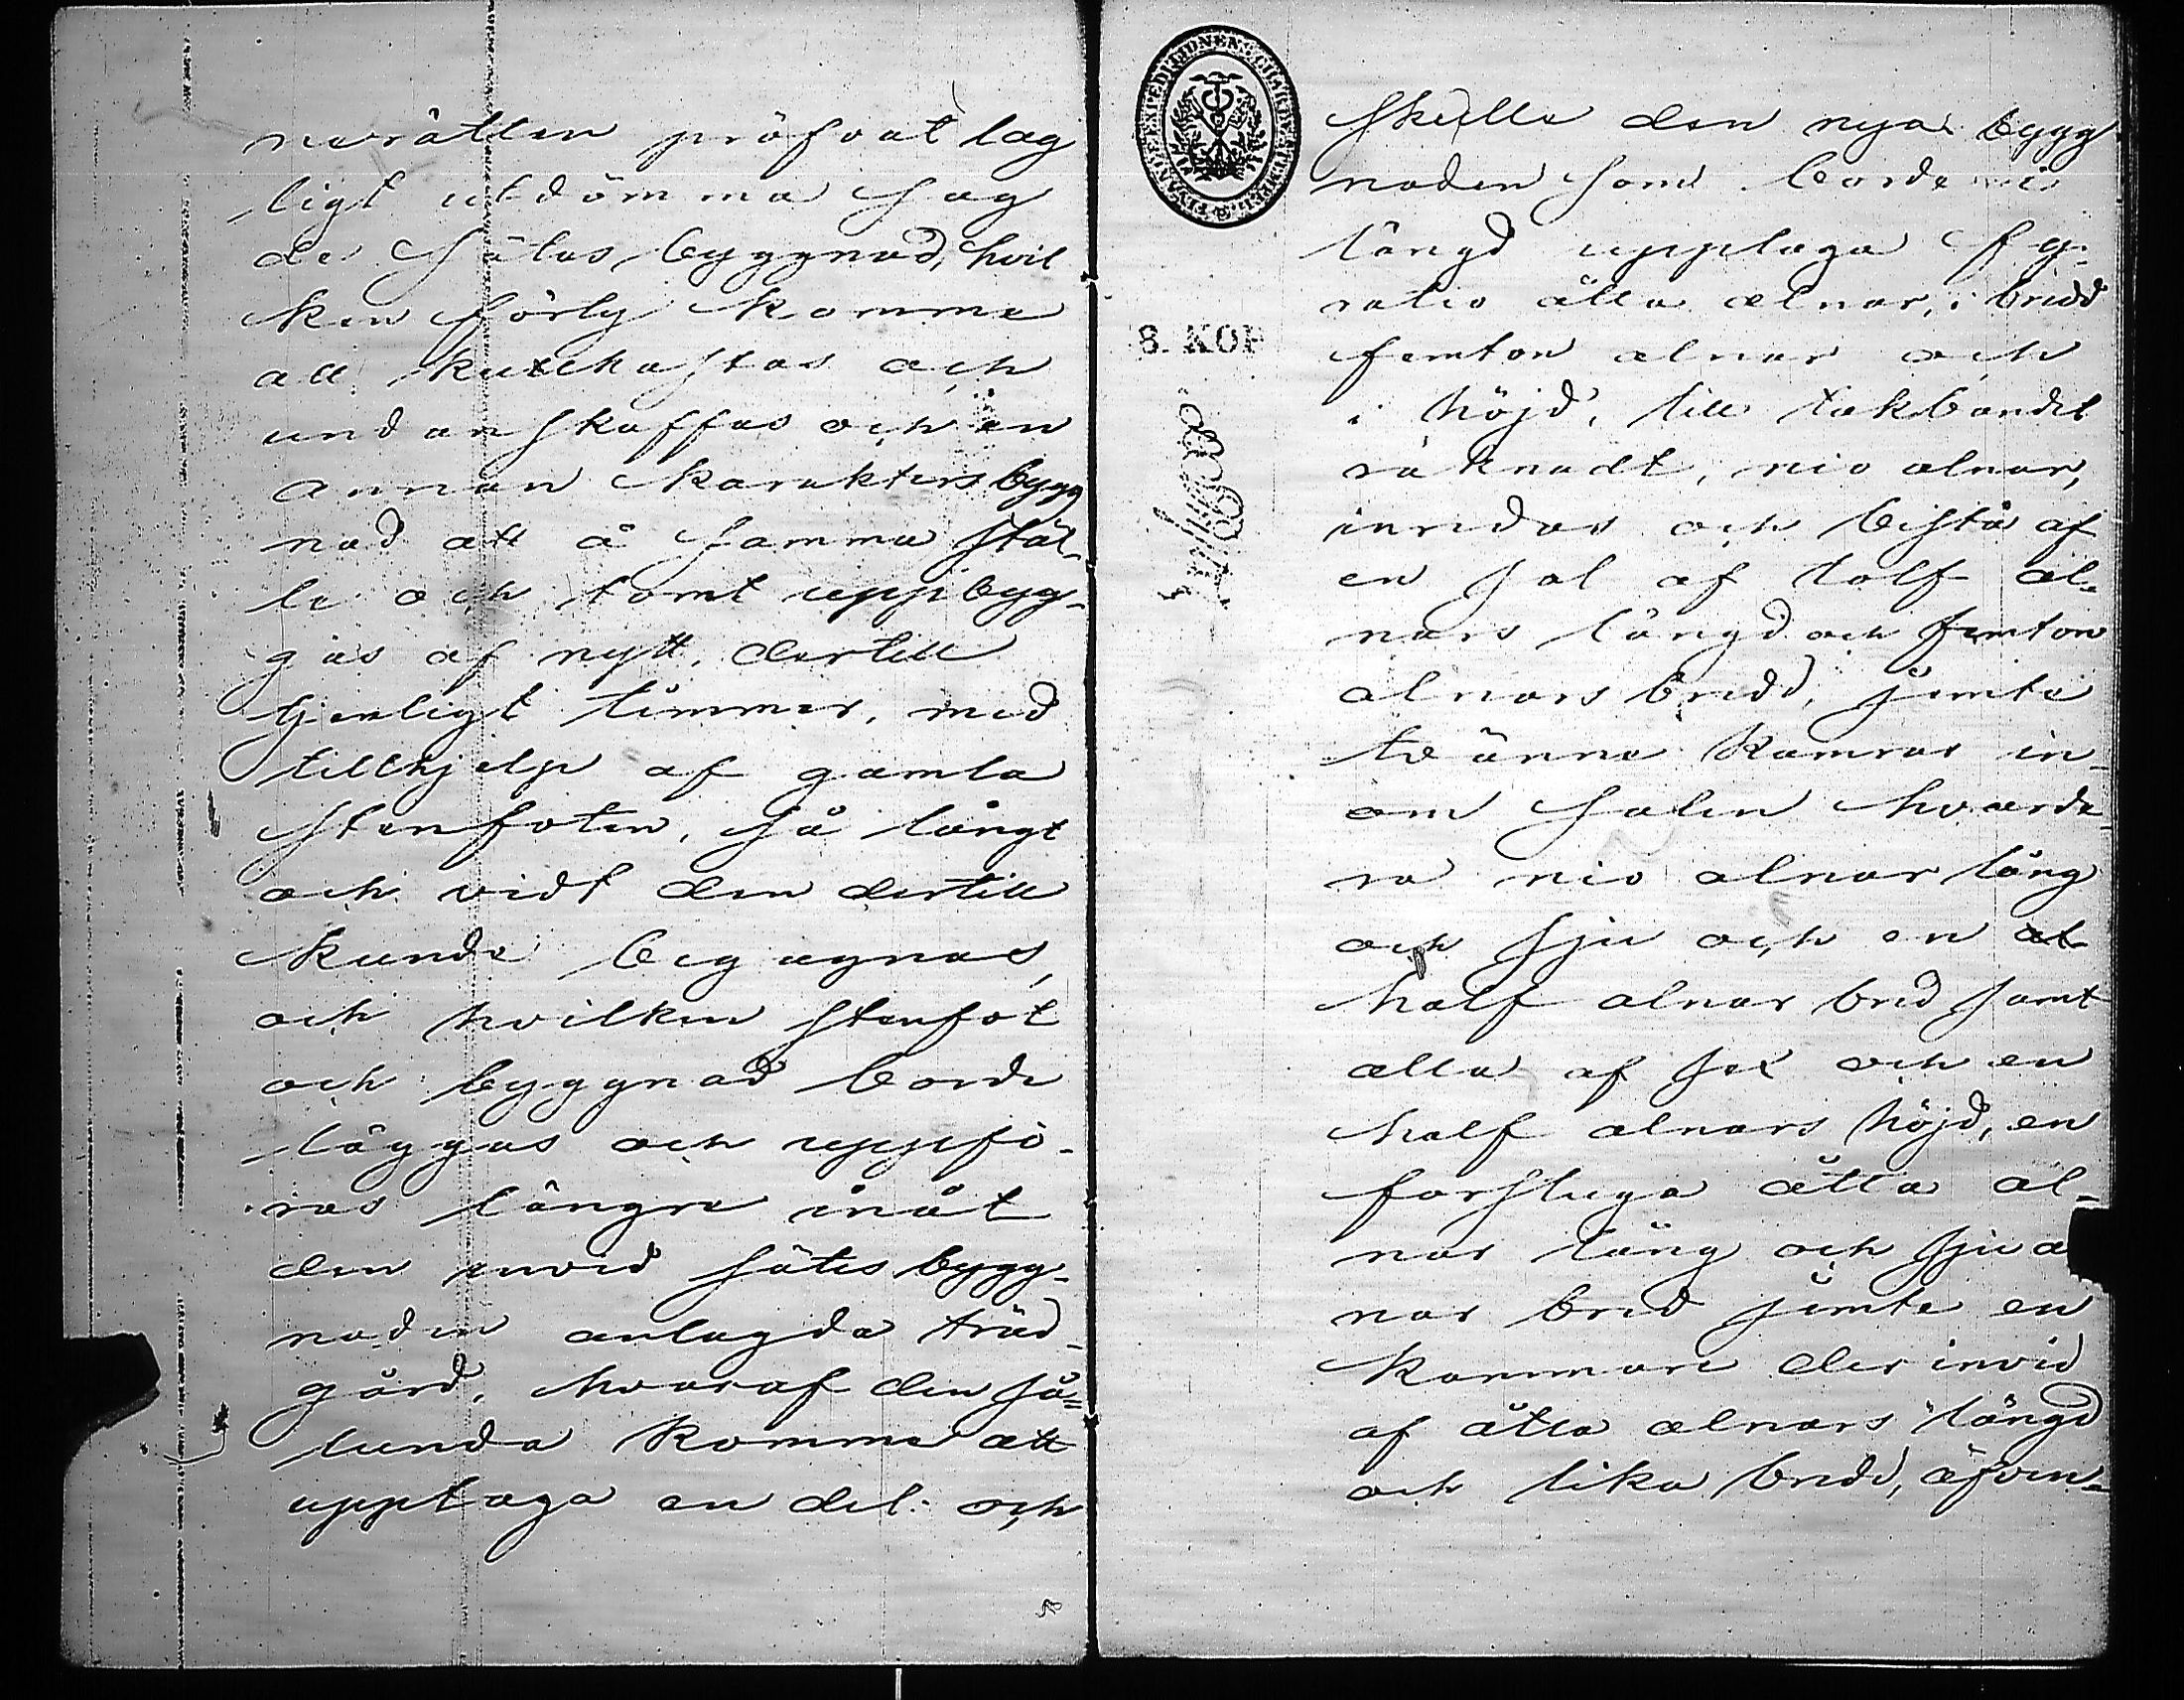 nerätten pröfvat lag
ligt utdömma sag
de Sätes byggnad, hvil
ken förty komme
att kullkastas och
undanskaffas och en
annan karaktersbygg
nad att å samma stäl-
le och tomt uppbyg-
gas af nytt, dertill
tjenligt timmer, med
tillhjelp af gamla
stenfoten, så långt
och vidt den dertill
kunde begagnas,
och hvilken stenfot
och byggnad borde
läggas och uppfö-
ras längre inåt
den invid sätesbygg-
naden anlagda träd-
gård, hvaraf den så-
lunda komme att
upptaga en del och
FINANCE EXPEDITIONENS CHARTÆ STEMPEL
8. KOP
skulle den nya bygg
naden som borde i
längd upptaga fy-
ratio åtta alnar, i bredd
femton alnar och
i höjd, till takbandet
räknadt, nio alnar,
inredas och bestå af
en sal af tolf al-
nars längd och femton
alnars bredd, jemte
tvänne kamrar in-
om salen hvarde-
ra nio alnar lång
och sju och en al
half alnar bred samt
alla af sex och en
half alnars höjd, en
farstuga åtta al-
nar lång och sju a
nar bred jemte en
kammare der invid
af åtta alnars längd
och lika bredd, äfven-